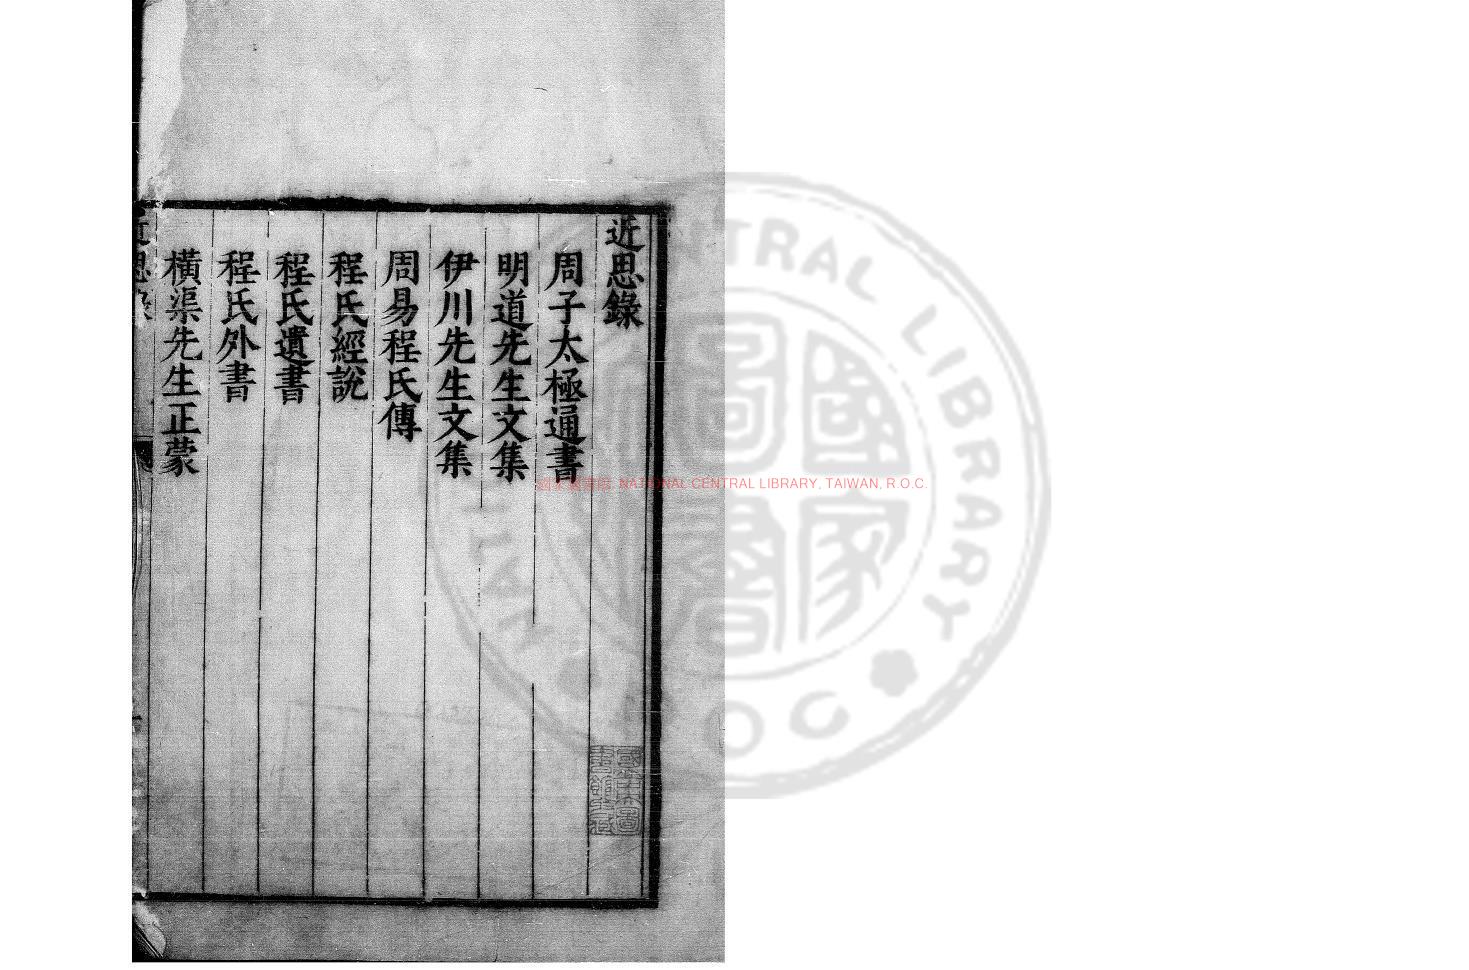 近思錄
周子太極通書
明道先生文集
伊川先生文集
周易程氏傳
程氏經說
程氏遺書
程氏外書
橫渠先生正蒙
近思錄
NATIONAL CENTRAL LIBRARY, TAIWAN, R.O.C.
國家圖書館
NATIONAL CENTRAL LIBRARY
R.O.C.